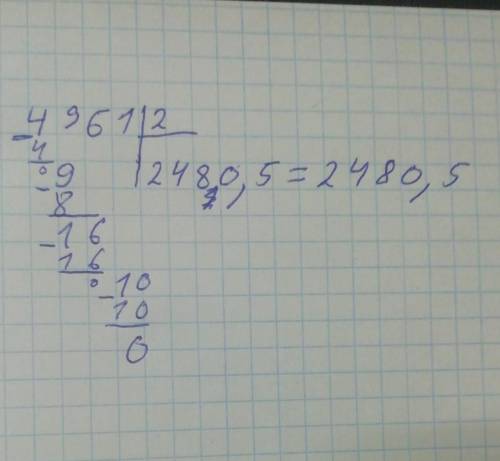 - 4961 | 2
4
0 2480,5 = 2480,5
- 9
8
- 16
16
0 - 10
10
0